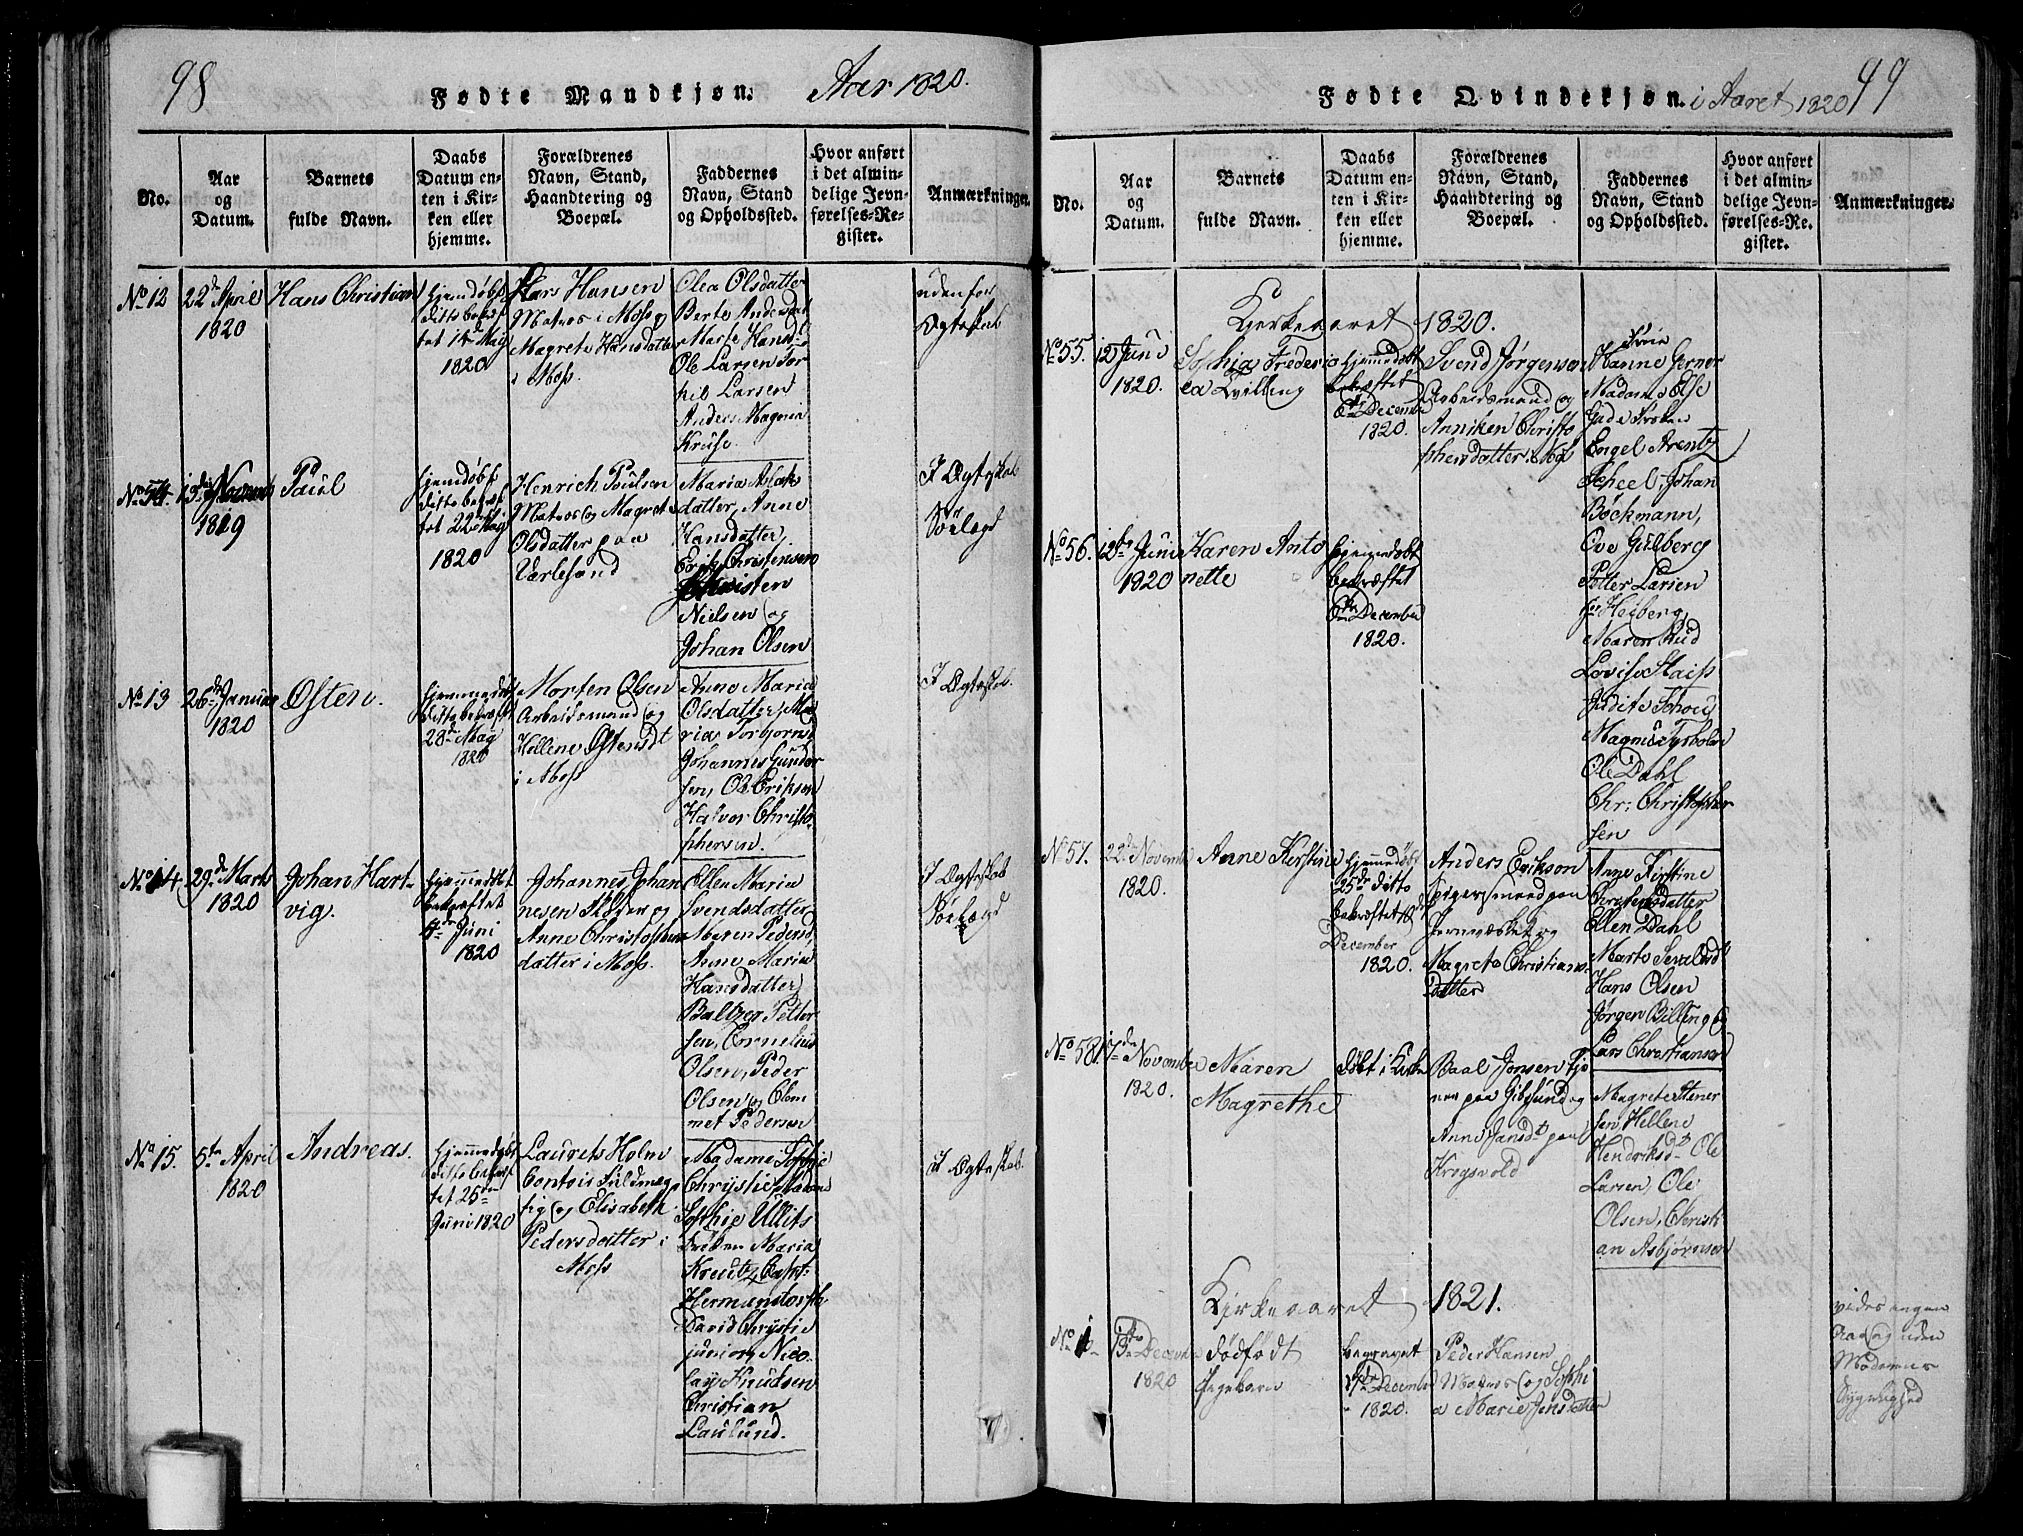 98
Fødte Mandkjøn. Aar 1820.
No.
Aar
og
Datum.
Barnets
fulde Navn.
Daabs
Datum en-
ten i Kir-
ken eller
hjemme.
Forældrenes
Navn, Stand,
Haandtering og
Boepæl.
Faddernes
Navn, Stand
og Opholdssted.
Hvor anført
i det almin-
delige Jevn-
førelses-Re-
gister.
Anmærkninger.
No 12
22de April
1820
Hans Christian
hjemdøbt
ditto bekræf
tet 14de Maij
1820
Lars Hansen
Matros i Moss og
Magrete Hansdatter
i Moss.
Olea Olsdatter
Berte Andersdat
Marte Hansd
Ole Larsen Tor
kil Larsen
Anders Magnus
Kruse.
udenfor
Ægteskab
No 54.
13de Novemb
1819
Paul
hjemdøbt
ditto bekræf
tet 22de Maij
1820
Henrich Poulsen
Matros og Magrete
Olsdatter paa
Værlesand
Maria Aslaks
datter, Anne
Hansdatter
Erik Christensen
Christen
Nielsen og
Johan Olsen
I Ægteskab
Søelagd
No 13
26de Januar
1820
Østen.
hjemmedøbt
ditto bekræft
28de Maij
1820
Morten Olsen
Arbeidsmand og
Hellene Østensdt
i Moss
Anne Maria
Olsdatter, Ma
rias Torbjørnsd
Johannes Gunder
sen, Ole Eriksen
Halvor Christo-
phersen.
I Ægteskab.
No 14.
29de Marts
1820
Johan Hart-
vig.
hjemmedøbt
bekræftet
4de Juni
1820
Johannes Johan
nesen og
Anne Christophers
datter i Moss.
Ellen Maria
Svendsdatter
Maren Pedersd
Anne Maria
Hansdatter
Baltzer Petter
sen, Cornelius
Olsen, Peder
Olsen og Clem
met Pedersen
I Ægteskab
Søelagd
No 15.
5te April
1820
Andreas.
hjemmedøbt
ditto bekræf
tet 25de
Juni 1820
Laurets Holm
Contoir Fuldmæg
tig og Elisabeth
Pedersdatter i
Moss
Madame Sophie
Chrystie Madame
Sophie Ullits
Frøken Maria
Kreutz Capt:
Hermandorff
David Chrystie
junior, Nico
lay Knudsen
Christian
Laulund.
I Ægteskab.
Fødte Qvindekjøn. i Aaret 1820 99
No.
Aar
og
Datum.
Barnets
fulde Navn.
Daabs
Datum en-
ten i Kir-
ken eller
hjemme.
Forældrenes
Navn, Stand,
Haandtering og
Boepæl.
Faddernes
Navn, Stand
og Opholdssted.
Hvor anført
i det almin-
delige Jevn-
førelses-Re-
gister.
Anmærkninger.
Kirkeaaret 1820.
No 55.
12 Juni
1820.
Sophia Frederi
ca Tvilling
hjemmedøbt
bekræftet
6te December
1820.
Svend Jørgensen
Arbeidsmand og
Anniken Christo
phersdatter
Hanne Gerner
Madame Else
Gade Frøken
Engel Arentz
Scheel, Johan
Bøckmann,
Ove Gulberg
Petter Larsen
Hoiberg
Maren Rud
Lovise Staiss
Magnus
Ole Dahl
Chr: Christopher
sen
No 56.
12te Juni
1820
Karen Anto
nette
hjemmedøbt
bekræftet
6te December
1820.
No 57.
22de Novembr
1820.
Anne Kirstine
hjemmedøbt
25de ditto
bekræftet 8de
December
1820.
Anders Erikson
mand paa
Jernværket og
Magrete Christians-
datter
Anne Kirstine
Christensdatter
Ellen Dahl
Marte
Hans Olsen
Jørgen Billing og
Lars Christiansen
No 58.
17de November
1820.
Maren
Magrethe
døbt i Kirke
Baal Jonsen Tje
ner paa Gibsund og
Anne Jansdt paa
Krogsvold
Magrete Stener
sen, Hellene
Hendriksdt Ole
Larsen, Ole
Olsen, Christi
an Asbjørnsen
Kirkeaaret 1821.
No 1.
13de December
1820
dødfødt
Pigebarn
begravet
17de December
1820.
Peder Hansen
Matros og Sophi
a Marie Jensdatter
vides ingen
Aarsag uden
Moderens
Sygelighed